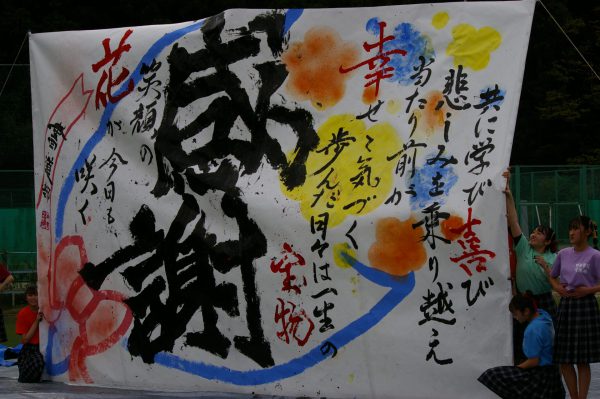 共に学び喜び
悲しみを乗り越え
当たり前が
幸せと気づく
歩んだ日々は一生の
宝物
感謝
笑顔の
花が今日も
咲く